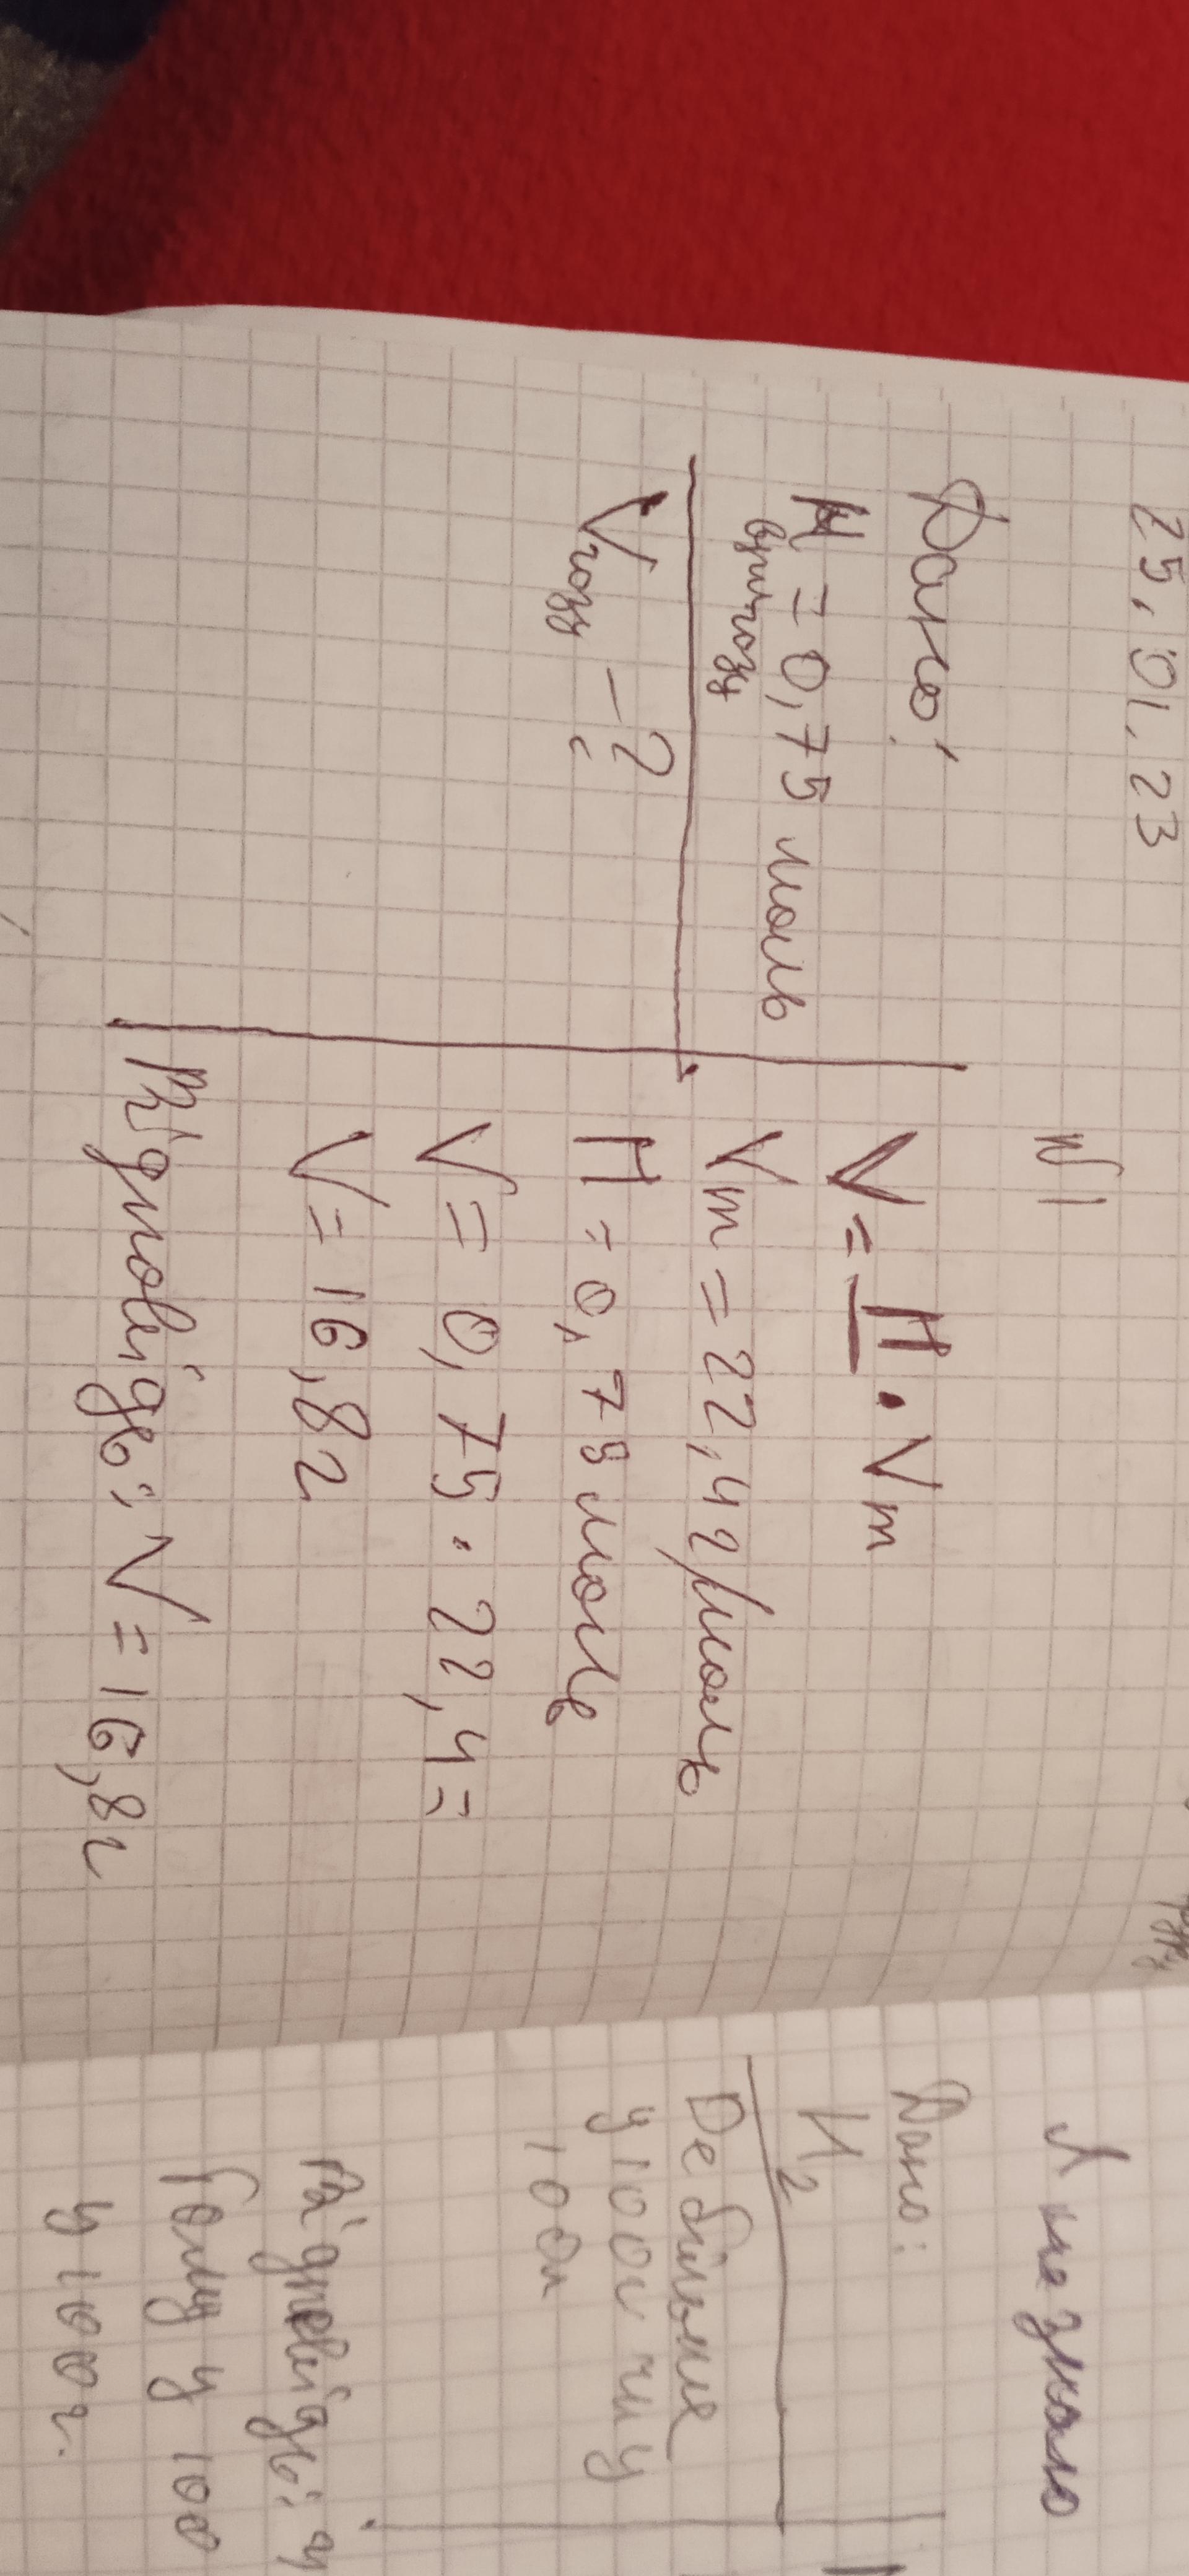 25.01.23
N1
Дано:
Н = 0,75 моль
Vгазу - ?
V = Н · Vm
Vm = 22,4 г/моль
Н = 0,75 моль
V = 0,75 · 22,4 =
V = 16,8г
Відповідь: V = 16,8г
Я не знаю
Дано:
H2
Де більше
у 100г чи у
100л
Відповідь: у
газу у 100
у 100г.